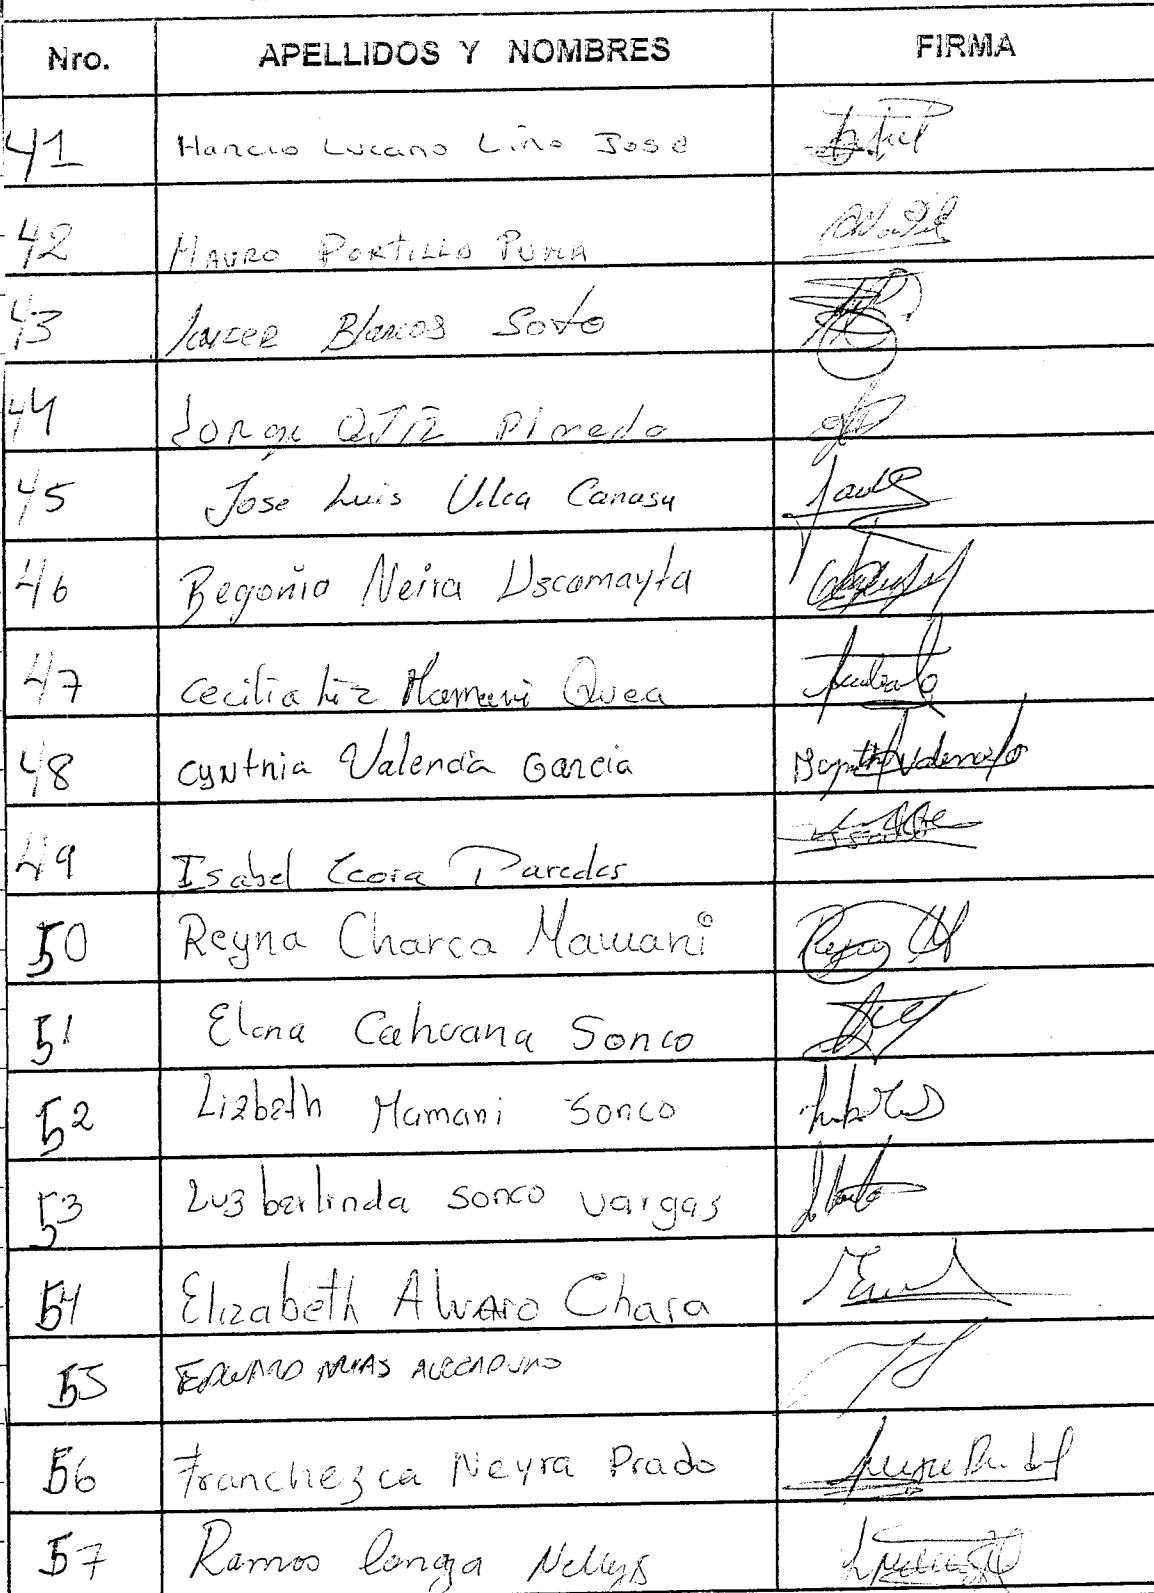 Nro. APELLIDOS Y NOMBRES FIRMA
41 Hancco Lucano Lino Jose
42 MAURO PORTILLO PUMA
43 Blancos Soto
44 Jorge Pineda
45 Jose Luis Vilca Canasa
46 Begonia Neira Uscamayta
47 Cecilia Liz Mamani Quea
48 Cynthia Valencia Garcia
49 Isabel Ccora Paredes
50 Reyna Charca Mamani
51 Elena Cahuana Sonco
52 Lizbeth Mamani Sonco
53 Luz berlinda Sonco Vargas
54 Elizabeth Alvaro Chara
55 EDWARD ARIAS
56 Franchezca Neyra Prado
57 Ramos Nellys